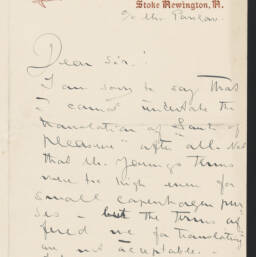 Stoke Newington, N.
c/o Mr. Panlow.
Dear Sir!
I am sorry to say that
I cannot undertake the
translation of "Sands of
pleasure" after all. Not
that Mr. Jennings terms
were too high even for
small copenhagen pur
ses – but the terms of
fered me for translating
are not acceptable. –